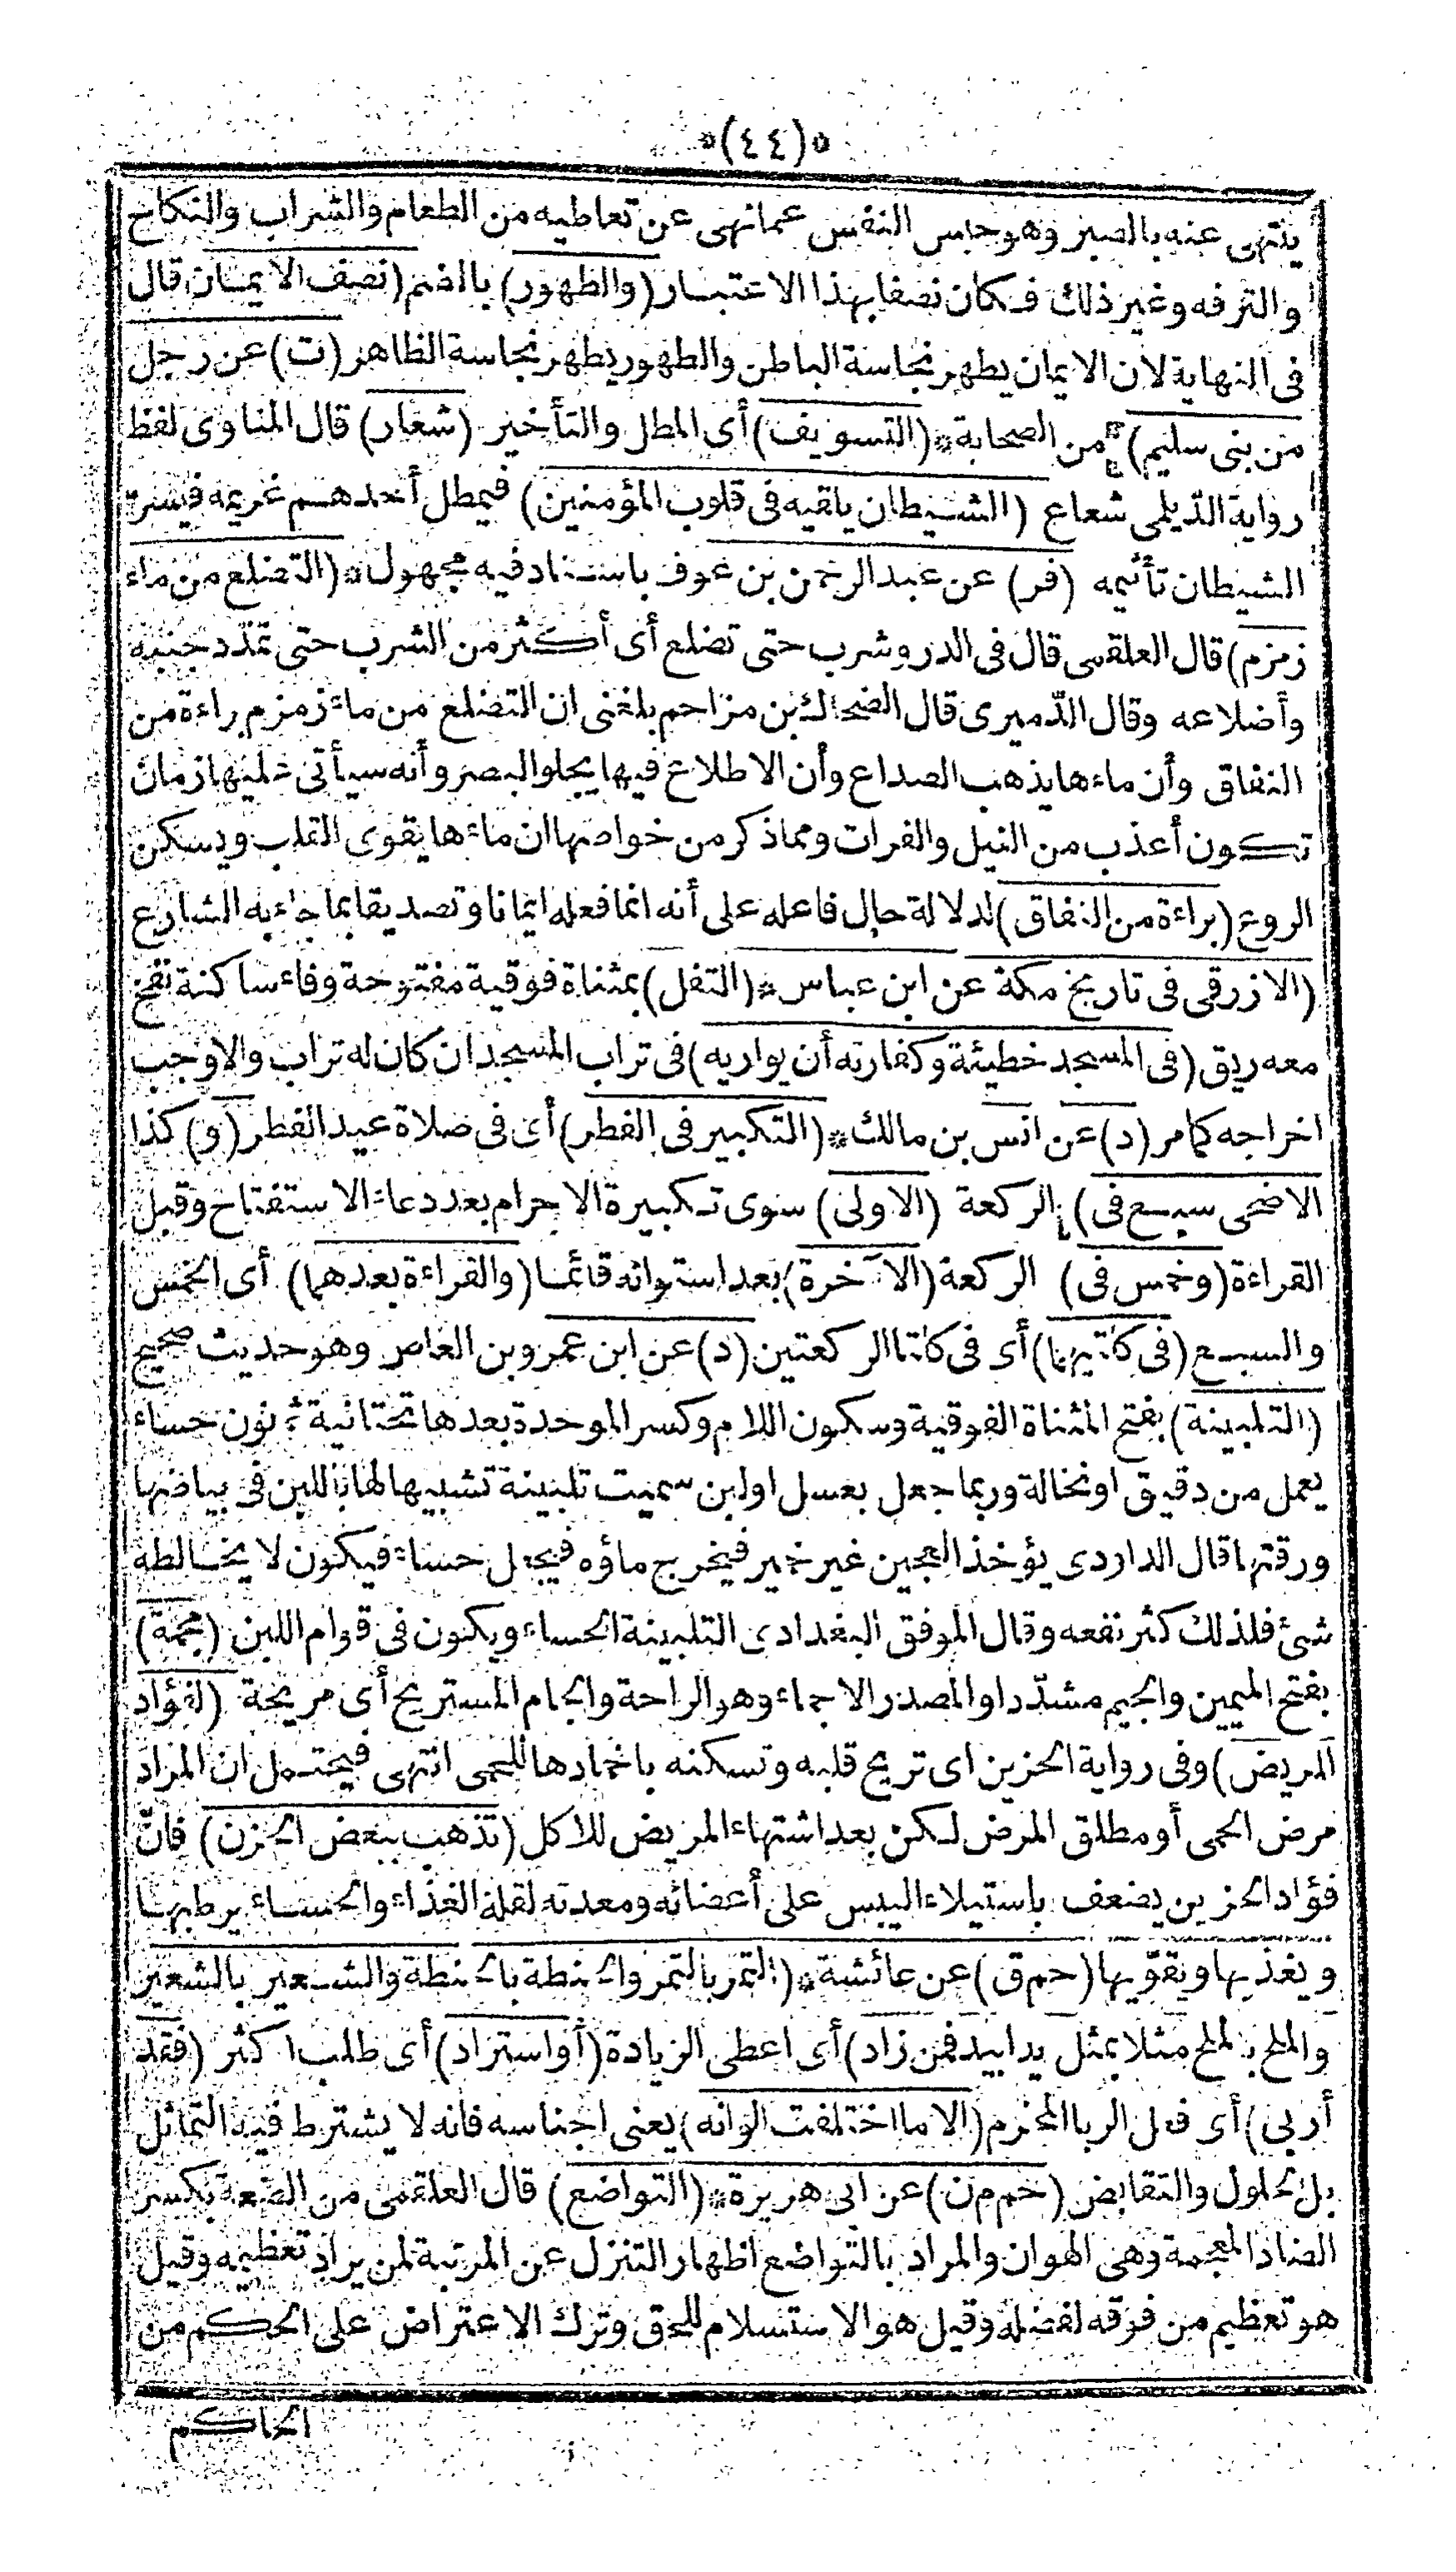 *(٤٤)*
ينتهى عنه بالصبر وهو حبس النفس عما نهى عن تعاطيه من الطعام والشراب والنكاح
والترفه وغير ذلك فكان نصفا بهذا الاعتبار (والطهور) بالضم (نصف الايمان) قال
فى النهاية لان الايمان يطهر نجاسة الباطن والطهور يطهر نجاسة الظاهر (ت) عن رجل
من بنى سليم) من الصحابة * (التسويف) أى المطل والتأخير (شعار) قال المناوى لفظ
رواية الديلى شعاع (الشيطان يلقيه فى قلوب المؤمنين) فيمطل أحدهم غريمه فيسرّ
الشيطان تأثيمه (فر) عن عبد الرحمن بن عوف باسناد فيه مجهول * (التضلع من ماء
زمزم) قال العلقمى قال فى الدر وشرب حتى تضلع أى أكثر من الشرب حتى تمدد جنبه
وأضلاعه وقال الدّميرى قال الضحاك بن مزاحم بلغنى ان التضلع من ماء زمزم براءة من
النفاق وأن ماءها يذهب الصداع وأن الاطلاع فيها يجلو البصر وأنه سيأتى عليها زمان
تكون أعذب من النيل والفرات ومما ذكر من خواصها ان ماءها يقوى القلب ويسكن
الروع (براءة من النفاق) لدلالة حال فاعله على أنه انما فعله ايمانا وتصديقا بما جاء به الشارع
(الازرقى فى تاريخ مكة عن ابن عباس * (التفل) بمثناة فوقية مفتوحة وفاء ساكنة نفخ
معه ريق (فى المسجد خطيئة وكفارته أن يواريه) فى تراب المسجد ان كان له تراب والاوجب
اخراجه كمامر (د) عن انس بن مالك * (التكبير فى الفطر) أى فى صلاة عيد الفطر (و) كذا
الاضحى سبع فى) الركعة (الاولى) سوى تكبيرة الاحرام بعد دعاء الاستفتاح وقبل
القراءة (وخمس فى) الركعة (الآخرة) بعد استوائه قائما (والقراءة بعدهما) أى الخمس
والسبع (فى كلتيهما) أى فى كلتا الركعتين (د) عن ابن عمرو بن العاص وهو حديث صحيح
(التلبينة) بفتح المثناة الفوقية وسكون اللام وكسر الموحدة بعدها تحتانية ثم نون حساء
يعمل من دقيق او نخالة وربما جعل بعسل او لبن سميت تلبينة تشبيها لها باللبن فى بياضها
ورقتها قال الداردى يؤخذ العجين غير خمير فيخرج ماؤه فيجعل حساء فيكون لا يخالطه
شئ فلذلك كثر نفعه وقال الموفق البغدادى التلبينة الحساء ويكون فى قوام اللبن (مجمة)
بفتح الميمين والجيم مشدّدا والمصدر الاجماء وهو الراحة والجام المستريح أى مريحة (لفؤاد
المريض) وفى رواية الحزين اى تريح قلبه وتسكنه باخمادها للحمى انتهى فيحتمل ان المراد
مرض الحمى أو مطلق المرض لكن بعد اشتهاء المريض للاكل (تذهب ببعض الحزن) فانّ
فؤاد الحزين يضعف باستيلاء اليبس على أعضائه ومعدته لقلة الغذاء والحساء يرطبها
ويغذيها ويقوّيها (حم ق) عن عائشة * (التمر بالتمر والحنطة بالحنطة والشعير بالشعير
والملح بالملح مثلا بمثل يدابيد فمن زاد) أى اعطى الزيادة (أو استزاد) أى طلب اكثر (فقد
أربى) أى فعل الربا المحرم (الا ما اختلفت الوانه) يعنى اجناسه فانه لا يشترط فيه التماثل
بل الحلول والتقابض (حم م ن) عن ابى هريرة * (التواضع) قال العلقمى من الضعة بكسر
الضاد المعجمة وهى الهوان والمراد بالتواضع اظهار التنزل عن المرتبة لمن يراد تعظيمه وقيل
هو تعظيم من فوقه لفضله وقيل هو الاستسلام للحق وترك الاعتراض على الحكم من
الحاكم